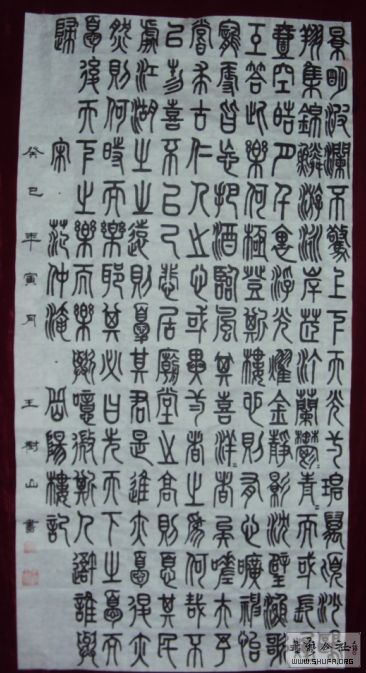 景明波瀾不驚上下天光一碧萬頃沙
翔集錦鱗游泳岸芷汀蘭鬱=青=而或長
壹空皓月千里浮光耀金靜影沈璧漁歌
互答此樂何極登斯樓也則有心曠神怡
寵辱皆忘把酒臨風其喜洋=者矣嗟夫予
嘗求古仁人之心或異二者之為何哉不
以物喜不以己悲居廟堂之高則憂其民
處江湖之遠則憂其君是進亦憂退亦
然則何時而樂耶其必曰先天下之憂而
憂後天下之樂而樂歟噫微斯人吾誰與
歸 宋 范仲淹 岳陽樓記
癸巳年寅月 王樹山書
WWW.SHUFA.ORG